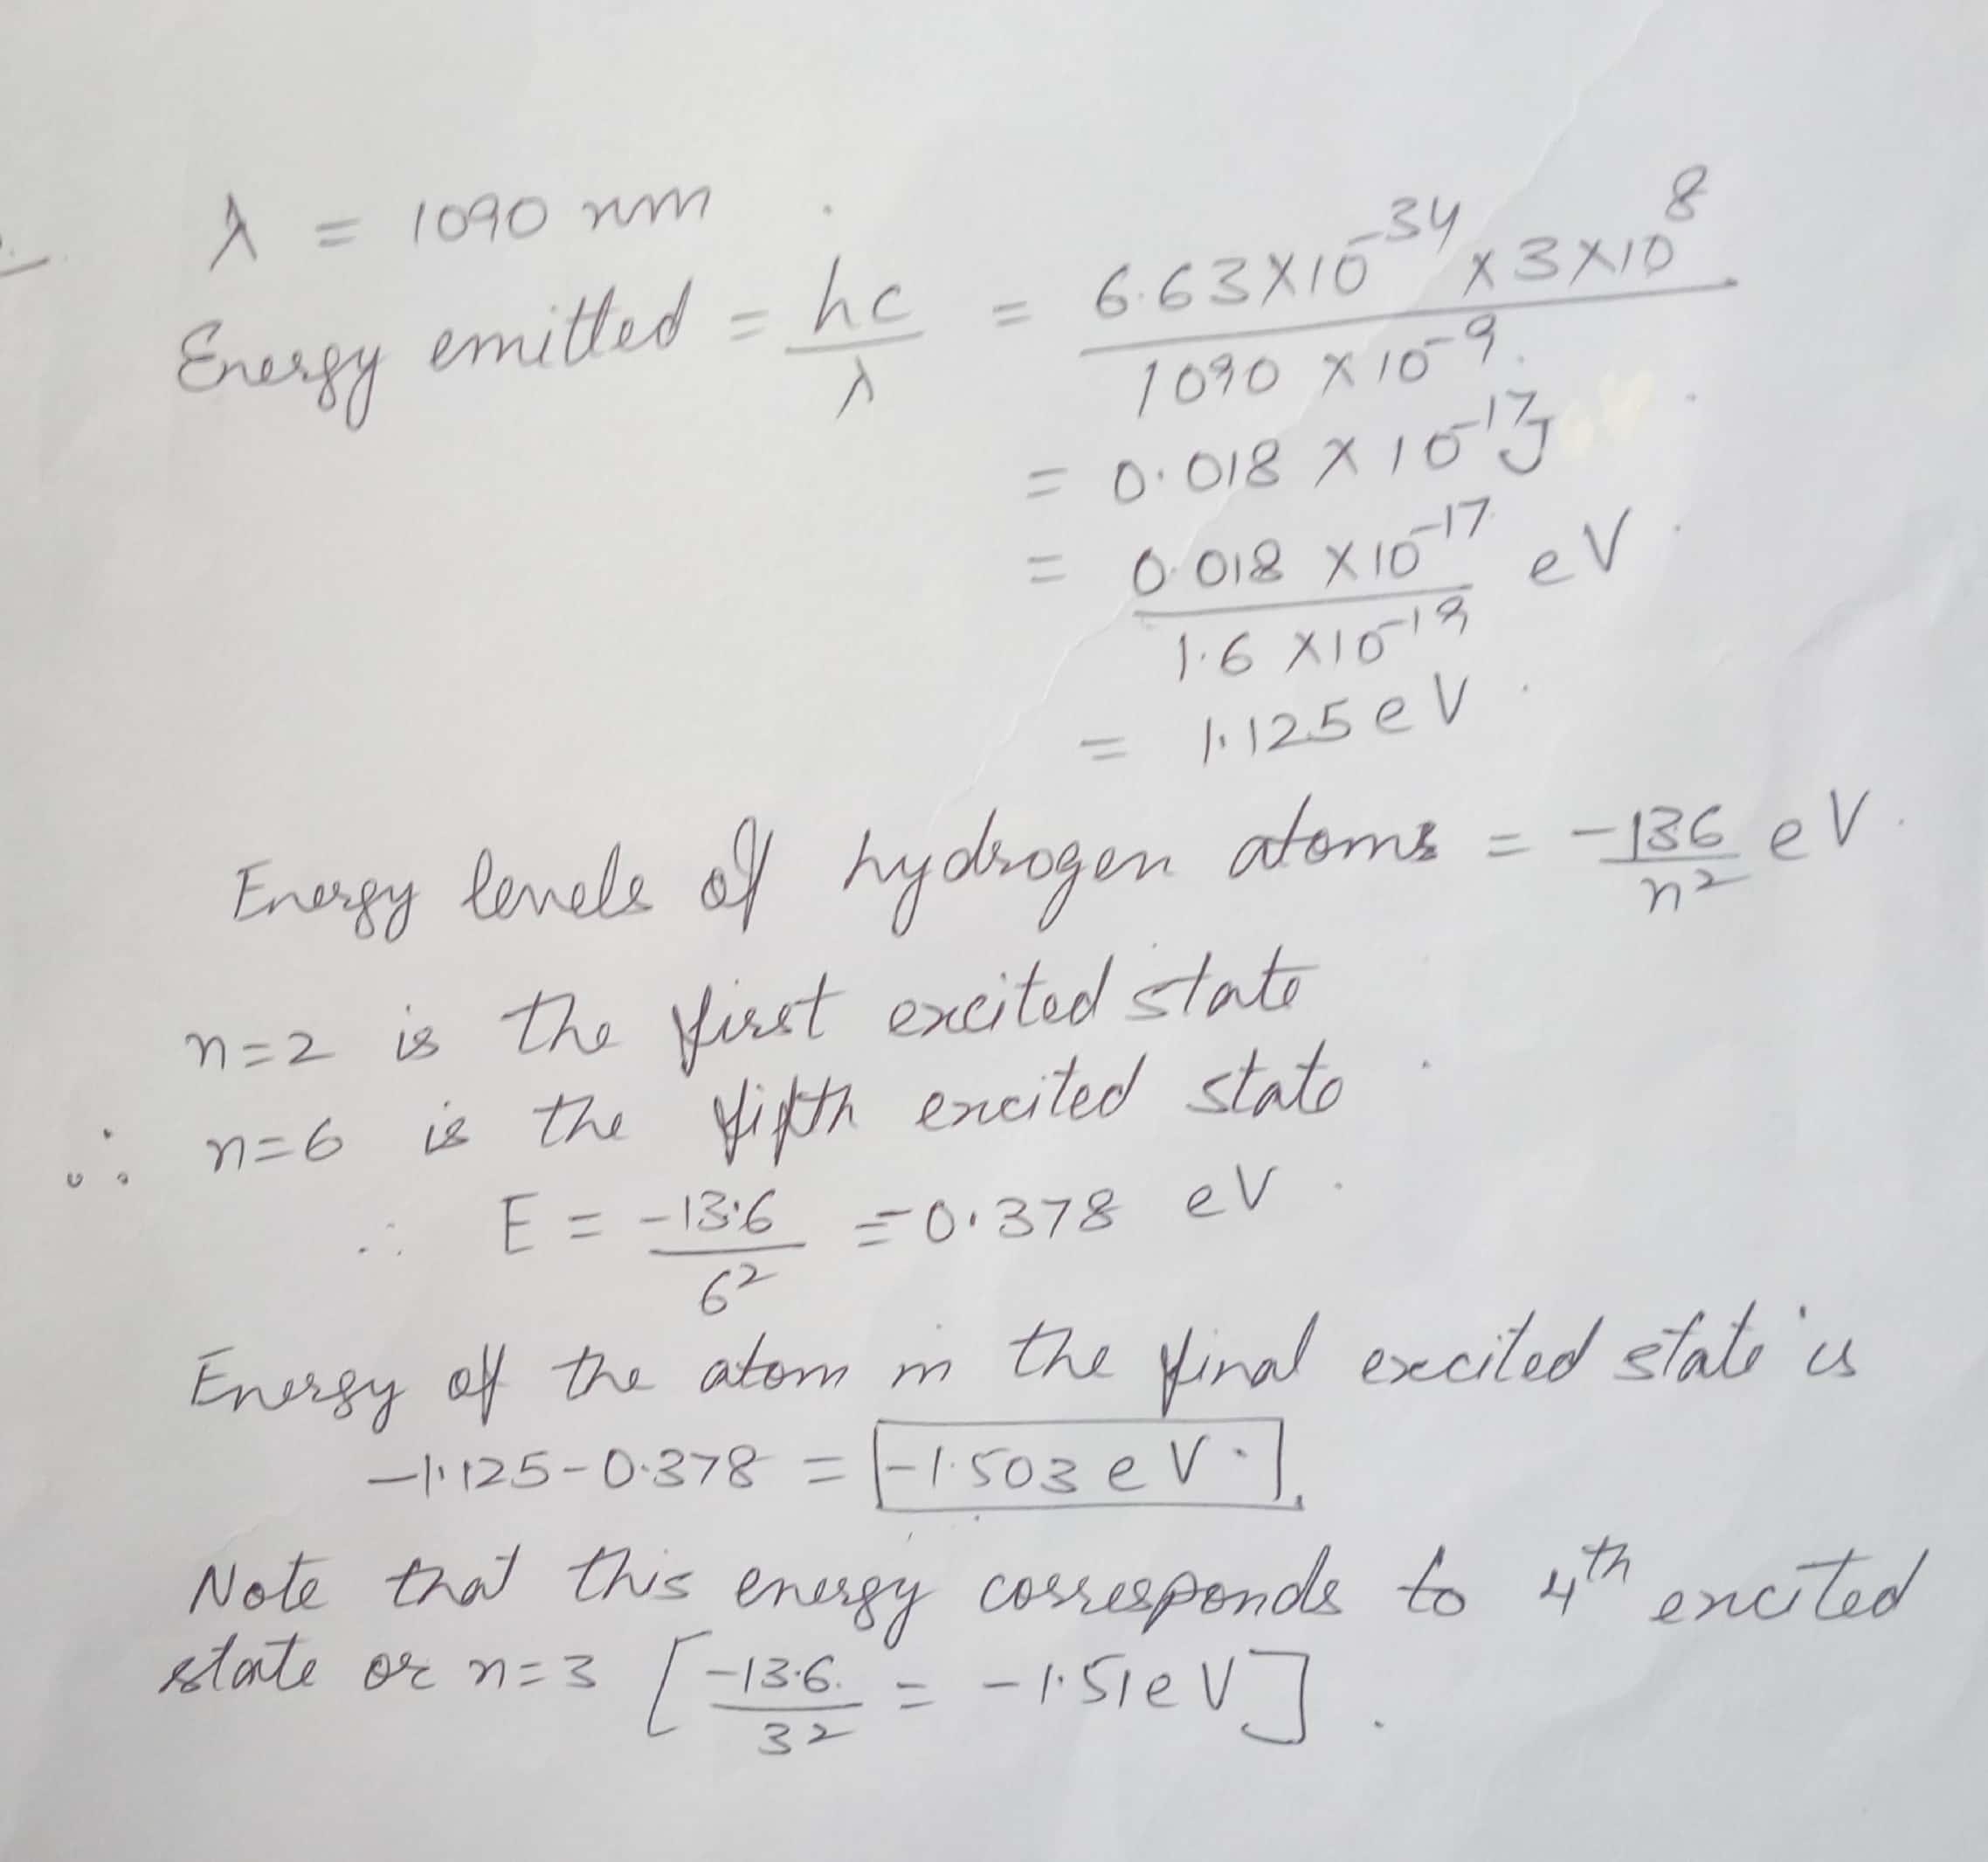 λ = 1090 nm
Energy emitted = hc/λ = 6.63×10^-34 × 3×10^8 / 1090 × 10^-9
= 0.018 × 10^-17 J
= 0.018 ×10^-17 / 1.6 ×10^-19 eV
= 1.125 eV
Energy levels of hydrogen atoms = -136/n² eV
n=2 is the first excited state
∴ n=6 is the fifth excited state
∴ E = -13.6/6² = -0.378 eV
Energy of the atom in the final excited state is
-1.125-0.378 = -1.503 eV.
Note that this energy corresponds to 4th excited
state or n=3 [-13.6/3² = -1.51eV].